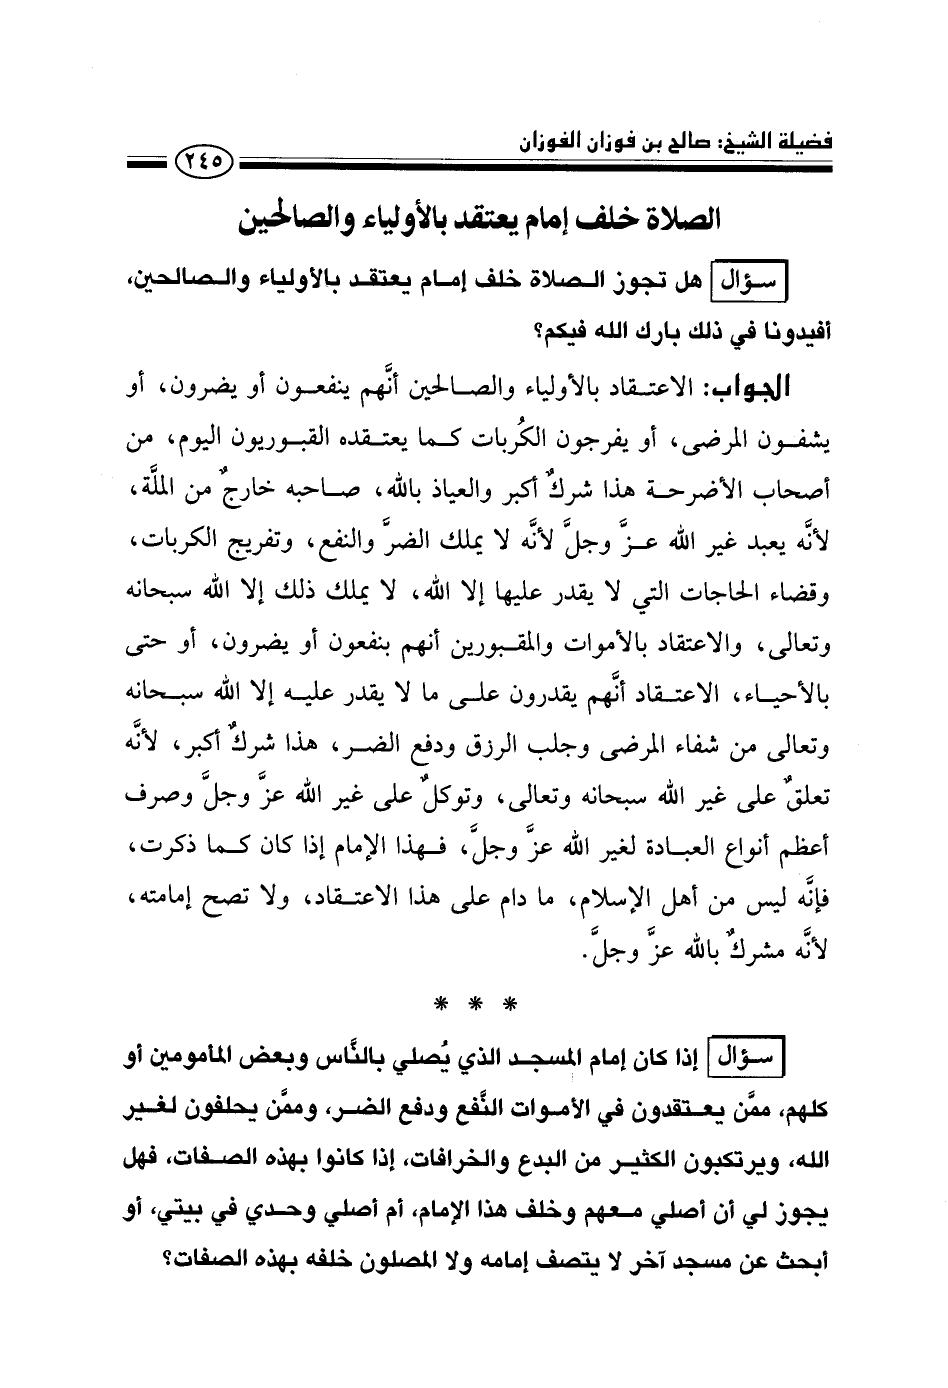 فضيلة الشيخ: صالح بن فوزان الفوزان
٢٤٥
الصلاة خلف إمام يعتقد بالأولياء والصالحين
سؤال هل تجوز الصلاة خلف إمام يعتقد بالأولياء والصالحين،
أفيدونا في ذلك بارك الله فيكم؟
الجواب: الاعتقاد بالأولياء والصالحين أنَّهم ينفعون أو يضرون، أو
يشفون المرضى، أو يفرجون الكُربات كما يعتقده القبوريون اليوم، من
أصحاب الأضرحة هذا شركٌ أكبر والعياذ بالله، صاحبه خارجٌ من الملَّة،
لأنَّه يعبد غير الله عزَّ وجلَّ لأنَّه لا يملك الضرَّ والنفع، وتفريج الكربات،
وقضاء الحاجات التي لا يقدر عليها إلا الله، لا يملك ذلك إلا الله سبحانه
وتعالى، والاعتقاد بالأموات والمقبورين أنهم ينفعون أو يضرون، أو حتى
بالأحياء، الاعتقاد أنَّهم يقدرون على ما لا يقدر عليه إلا الله سبحانه
وتعالى من شفاء المرضى وجلب الرزق ودفع الضر، هذا شركٌ أكبر، لأنَّه
تعلقٌ على غير الله سبحانه وتعالى، وتوكلٌ على غير الله عزَّ وجلَّ وصرف
أعظم أنواع العبادة لغير الله عزَّ وجلَّ، فهذا الإمام إذا كان كما ذكرت،
فإنَّه ليس من أهل الإسلام، ما دام على هذا الاعتقاد، ولا تصح إمامته،
لأنَّه مشركٌ بالله عزَّ وجلَّ.
* * *
سؤال إذا كان إمام المسجد الذي يُصلي بالنَّاس وبعض المأمومين أو
كلهم، ممَّن يعتقدون في الأموات النَّفع ودفع الضر، وممَّن يحلفون لغير
الله، ويرتكبون الكثير من البدع والخرافات، إذا كانوا بهذه الصفات، فهل
يجوز لي أن أصلي معهم وخلف هذا الإمام، أم أصلي وحدي في بيتي، أو
أبحث عن مسجد آخر لا يتصف إمامه ولا المصلون خلفه بهذه الصفات؟